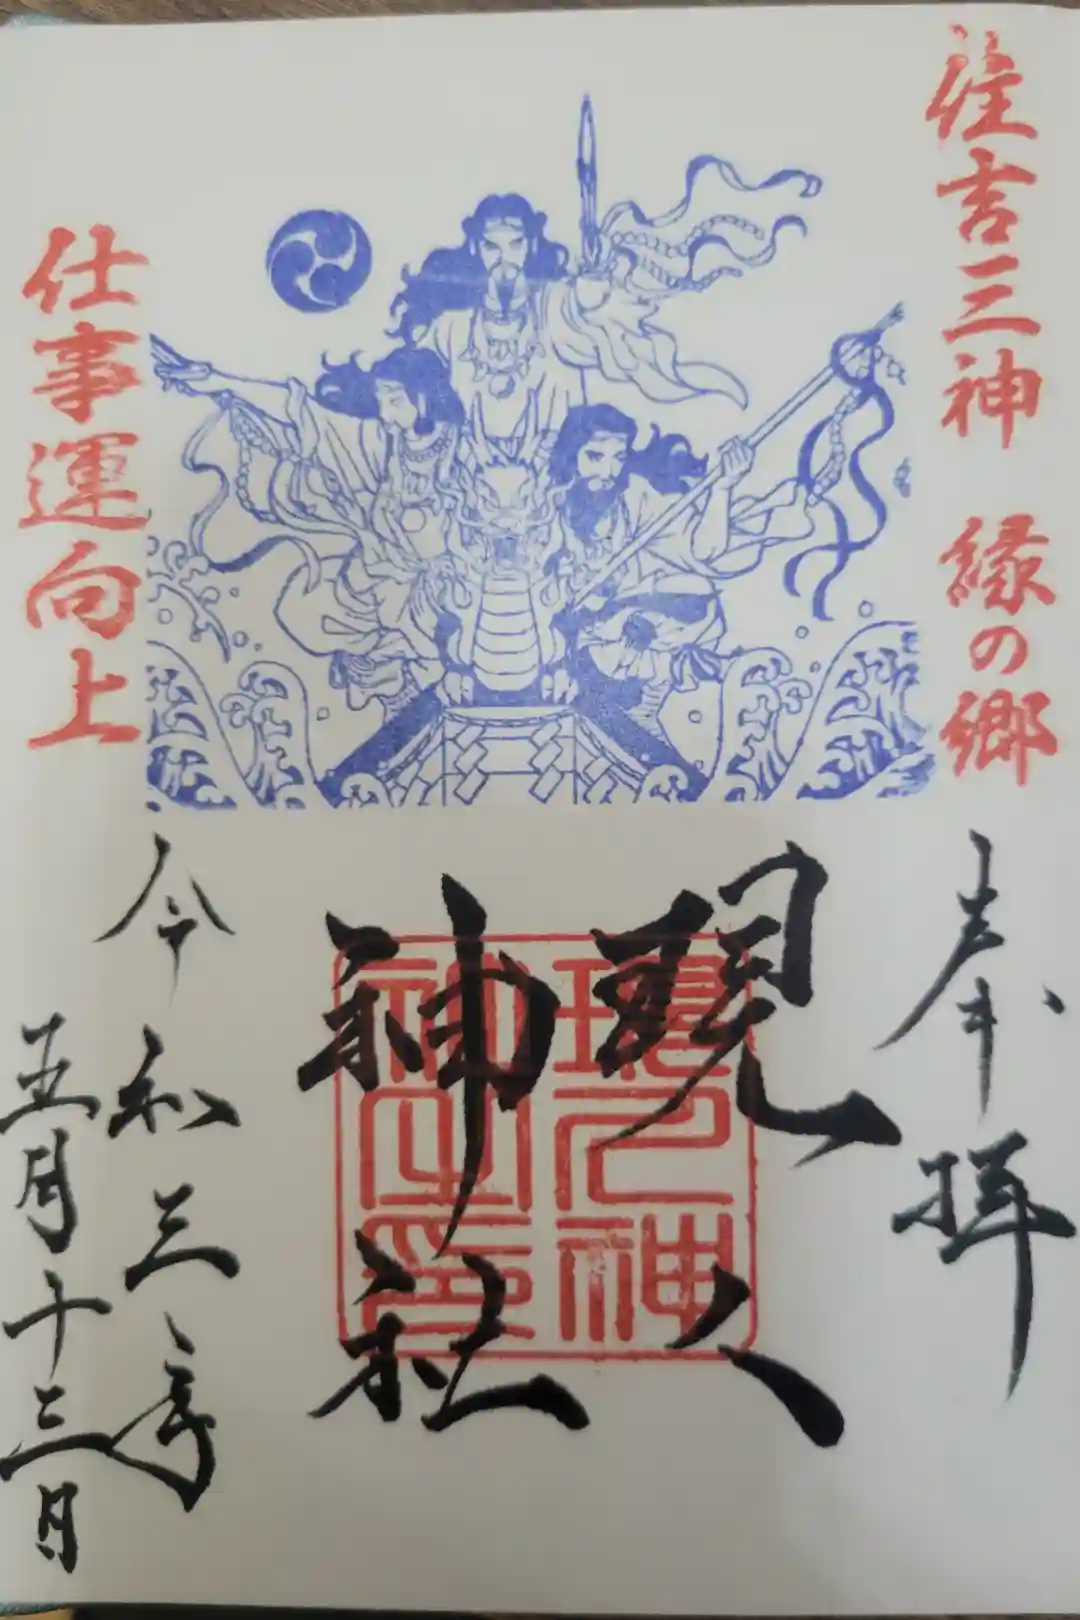 住吉三神 縁の郷
奉拝
現人
神社
現人神
社之印
仕事運向上
令和三年
五月十三日